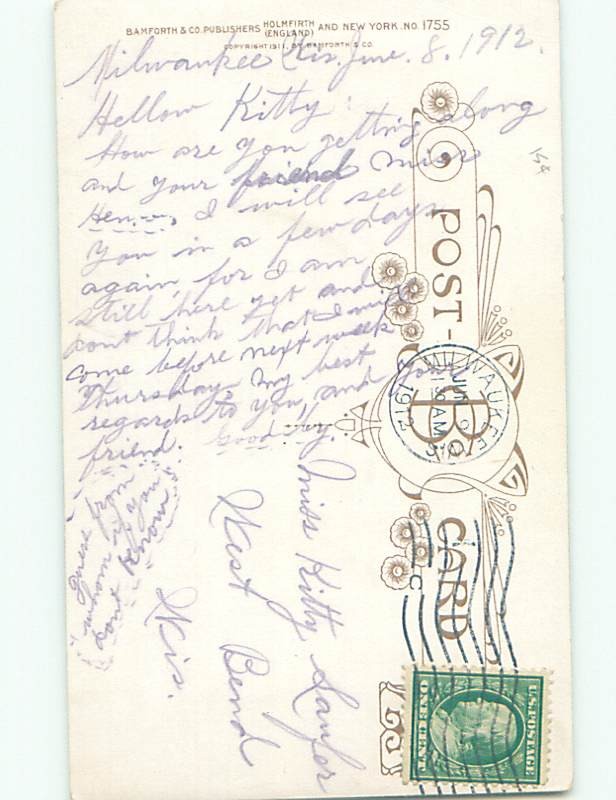 BAMFORTH & CO. PUBLISHERS HOLMFIRTH (ENGLAND) AND NEW YORK. NO. 1755
COPYRIGHT 1911, BY BAMFORTH & CO.
Milwaukee Wis. June. 8. 1912.
Hellow Kitty:
How are you getting along
and your friend miss
I will see
you in a few days
again, for I am
still here yet and
dont think that I will
come before next week
Thursday. My best
regards to you, and your
friend. Good by.
Guess from
whom if you
dont know
Miss Kitty
West Bend
Wis.
POST-CARD
B Co
MILWAUKEE
1912
U.S. POSTAGE
ONE CENT